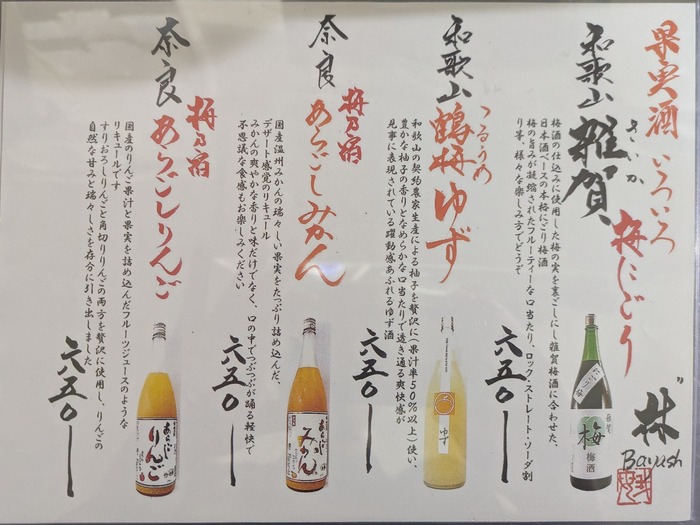 果実酒いろいろ
和歌山 雑賀 梅にごり
さいか
梅酒の仕込みに使用した梅の実を裏ごしにし雑賀梅酒に合わせた、
日本酒ベースの本格にごり梅酒
梅の旨みが凝縮されたフルーティーな口当たり、ロック・ストレート・ソーダ割
り等、様々な楽しみ方でどうぞ
六五〇ー
和歌山 鶴梅 ゆず
つるうめ
和歌山の契約農家生産による柚子を贅沢に(果汁率50%以上)使い、
豊かな柚子の香りとなめらかな口当たりで透き通る爽快感が
見事に表現されている躍動感あふれるゆず酒
六五〇ー
奈良 梅乃宿 あらごしみかん
国産温州みかんの瑞々しい果実をたっぷり詰め込んだ、
デザート感覚のリキュール
みかんの爽やかな香りと味だけでなく、口の中でつぶつぶが踊る軽快で
不思議な食感もお楽しみください
六五〇ー
奈良 梅乃宿 あらごしりんご
国産のりんご果汁と果実を詰め込んだフルーツジュースのような
リキュールです
すりおろしりんごと角切りりんごの両方を贅沢に使用し、りんごの
自然な甘みと瑞々しさを存分に引き出しました
六五〇ー
にごり
梅
梅酒
ゆず
あらごし
みかん
あらごし
りんご
林
Bayashi